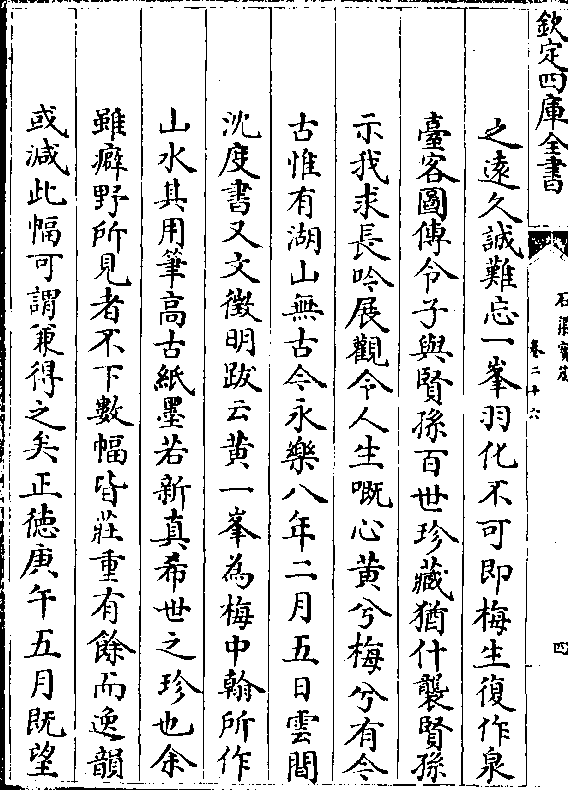 欽定四庫全書
石渠寳笈
卷二十六
四
之遠久誠難忘一峯羽化不可即梅生復作泉
臺客圖傳令子與賢孫百世珍藏猶什襲賢孫
示我求長吟展觀令人生嘅心黄兮梅兮有今
古惟有湖山無古今永樂八年二月五日雲間
沈度書又文徵明跋云黄一峯為梅中翰所作
山水其用筆高古紙墨若新真希世之珍也余
雖癖野所見者不下數幅皆莊重有餘而逸韻
或減此幅可謂兼得之矣正徳庚午五月既望